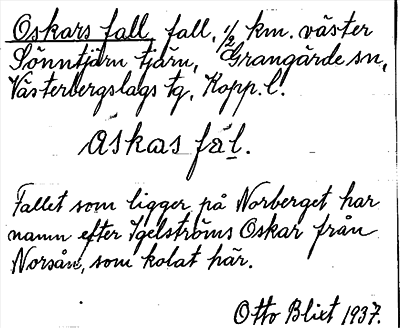 Oskars fall, fall, 1/2 km. väster
Sönntjärn tjärn, Grangärde sn,
Västerbergslags tg, Kopp. l.
åskas fäl.
Fallet som ligger på Norberget har
namn efter Igelströms Oskar från
Norsån, som kolat här.
Otto Blixt 1937.